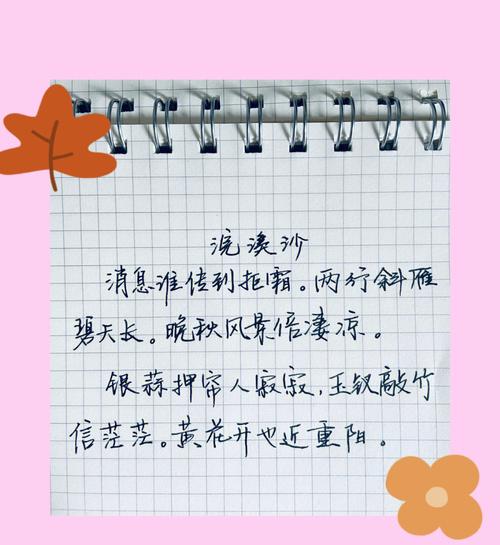 浣溪沙
消息谁传到拒霜。两行斜雁
碧天长。晚秋风景倍凄凉。
银蒜押帘人寂寂,玉钗敲竹
信茫茫。黄花开也近重阳。